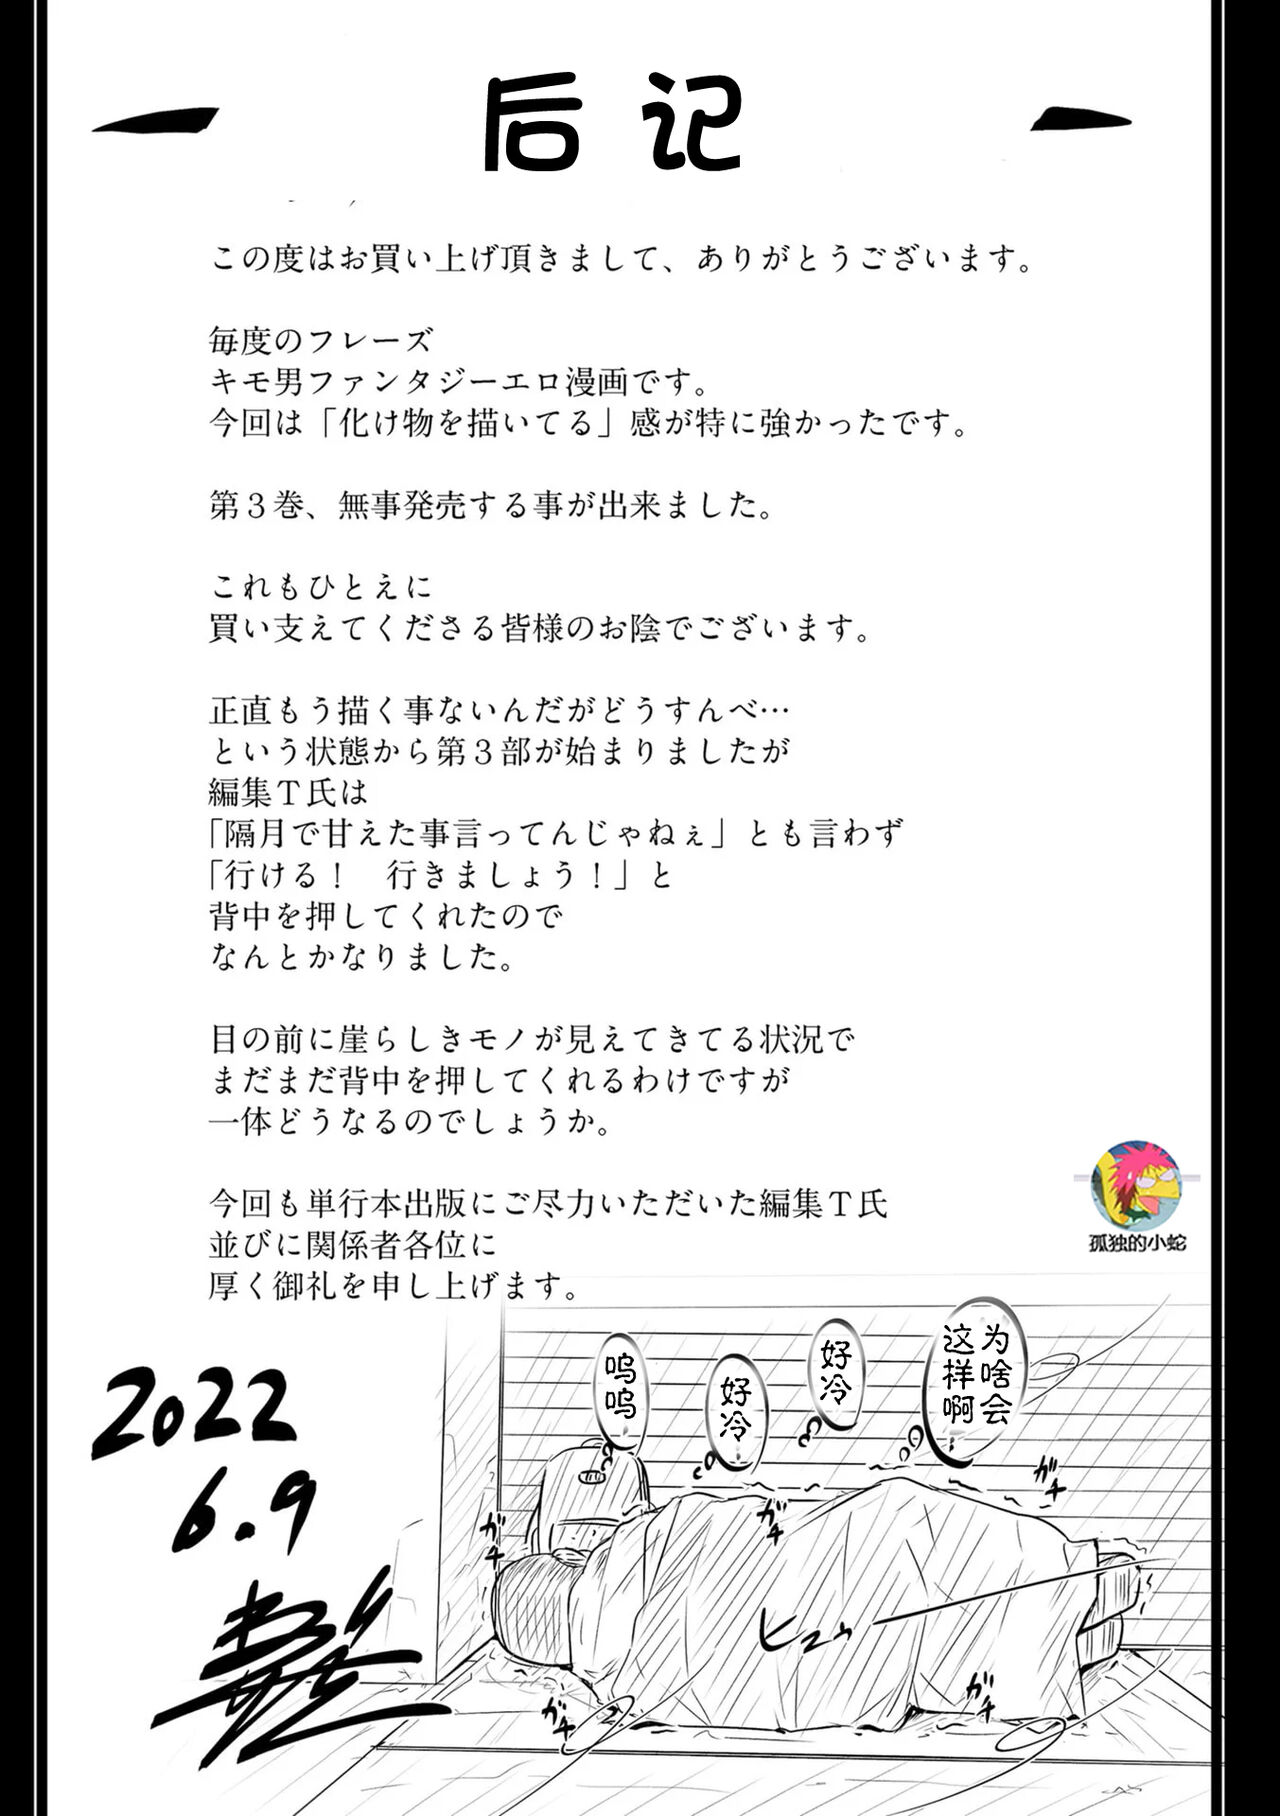 后记
この度はお買い上げ頂きまして、ありがとうございます。
毎度のフレーズ
キモ男ファンタジーエロ漫画です。
今回は「化け物を描いてる」感が特に強かったです。
第３巻、無事発売する事が出来ました。
これもひとえに
買い支えてくださる皆様のお陰でございます。
正直もう描く事ないんだがどうすんべ…
という状態から第３部が始まりましたが
編集Ｔ氏は
「隔月で甘えた事言ってんじゃねぇ」とも言わず
「行ける！　行きましょう！」と
背中を押してくれたので
なんとかなりました。
目の前に崖らしきモノが見えてきてる状況で
まだまだ背中を押してくれるわけですが
一体どうなるのでしょうか。
今回も単行本出版にご尽力いただいた編集Ｔ氏
並びに関係者各位に
厚く御礼を申し上げます。
孤独的小蛇
为啥会
这样啊
好冷
好冷
呜呜
2022
6.9
ガチ
ガチ
ガチ
ガチ
ヒュゥ